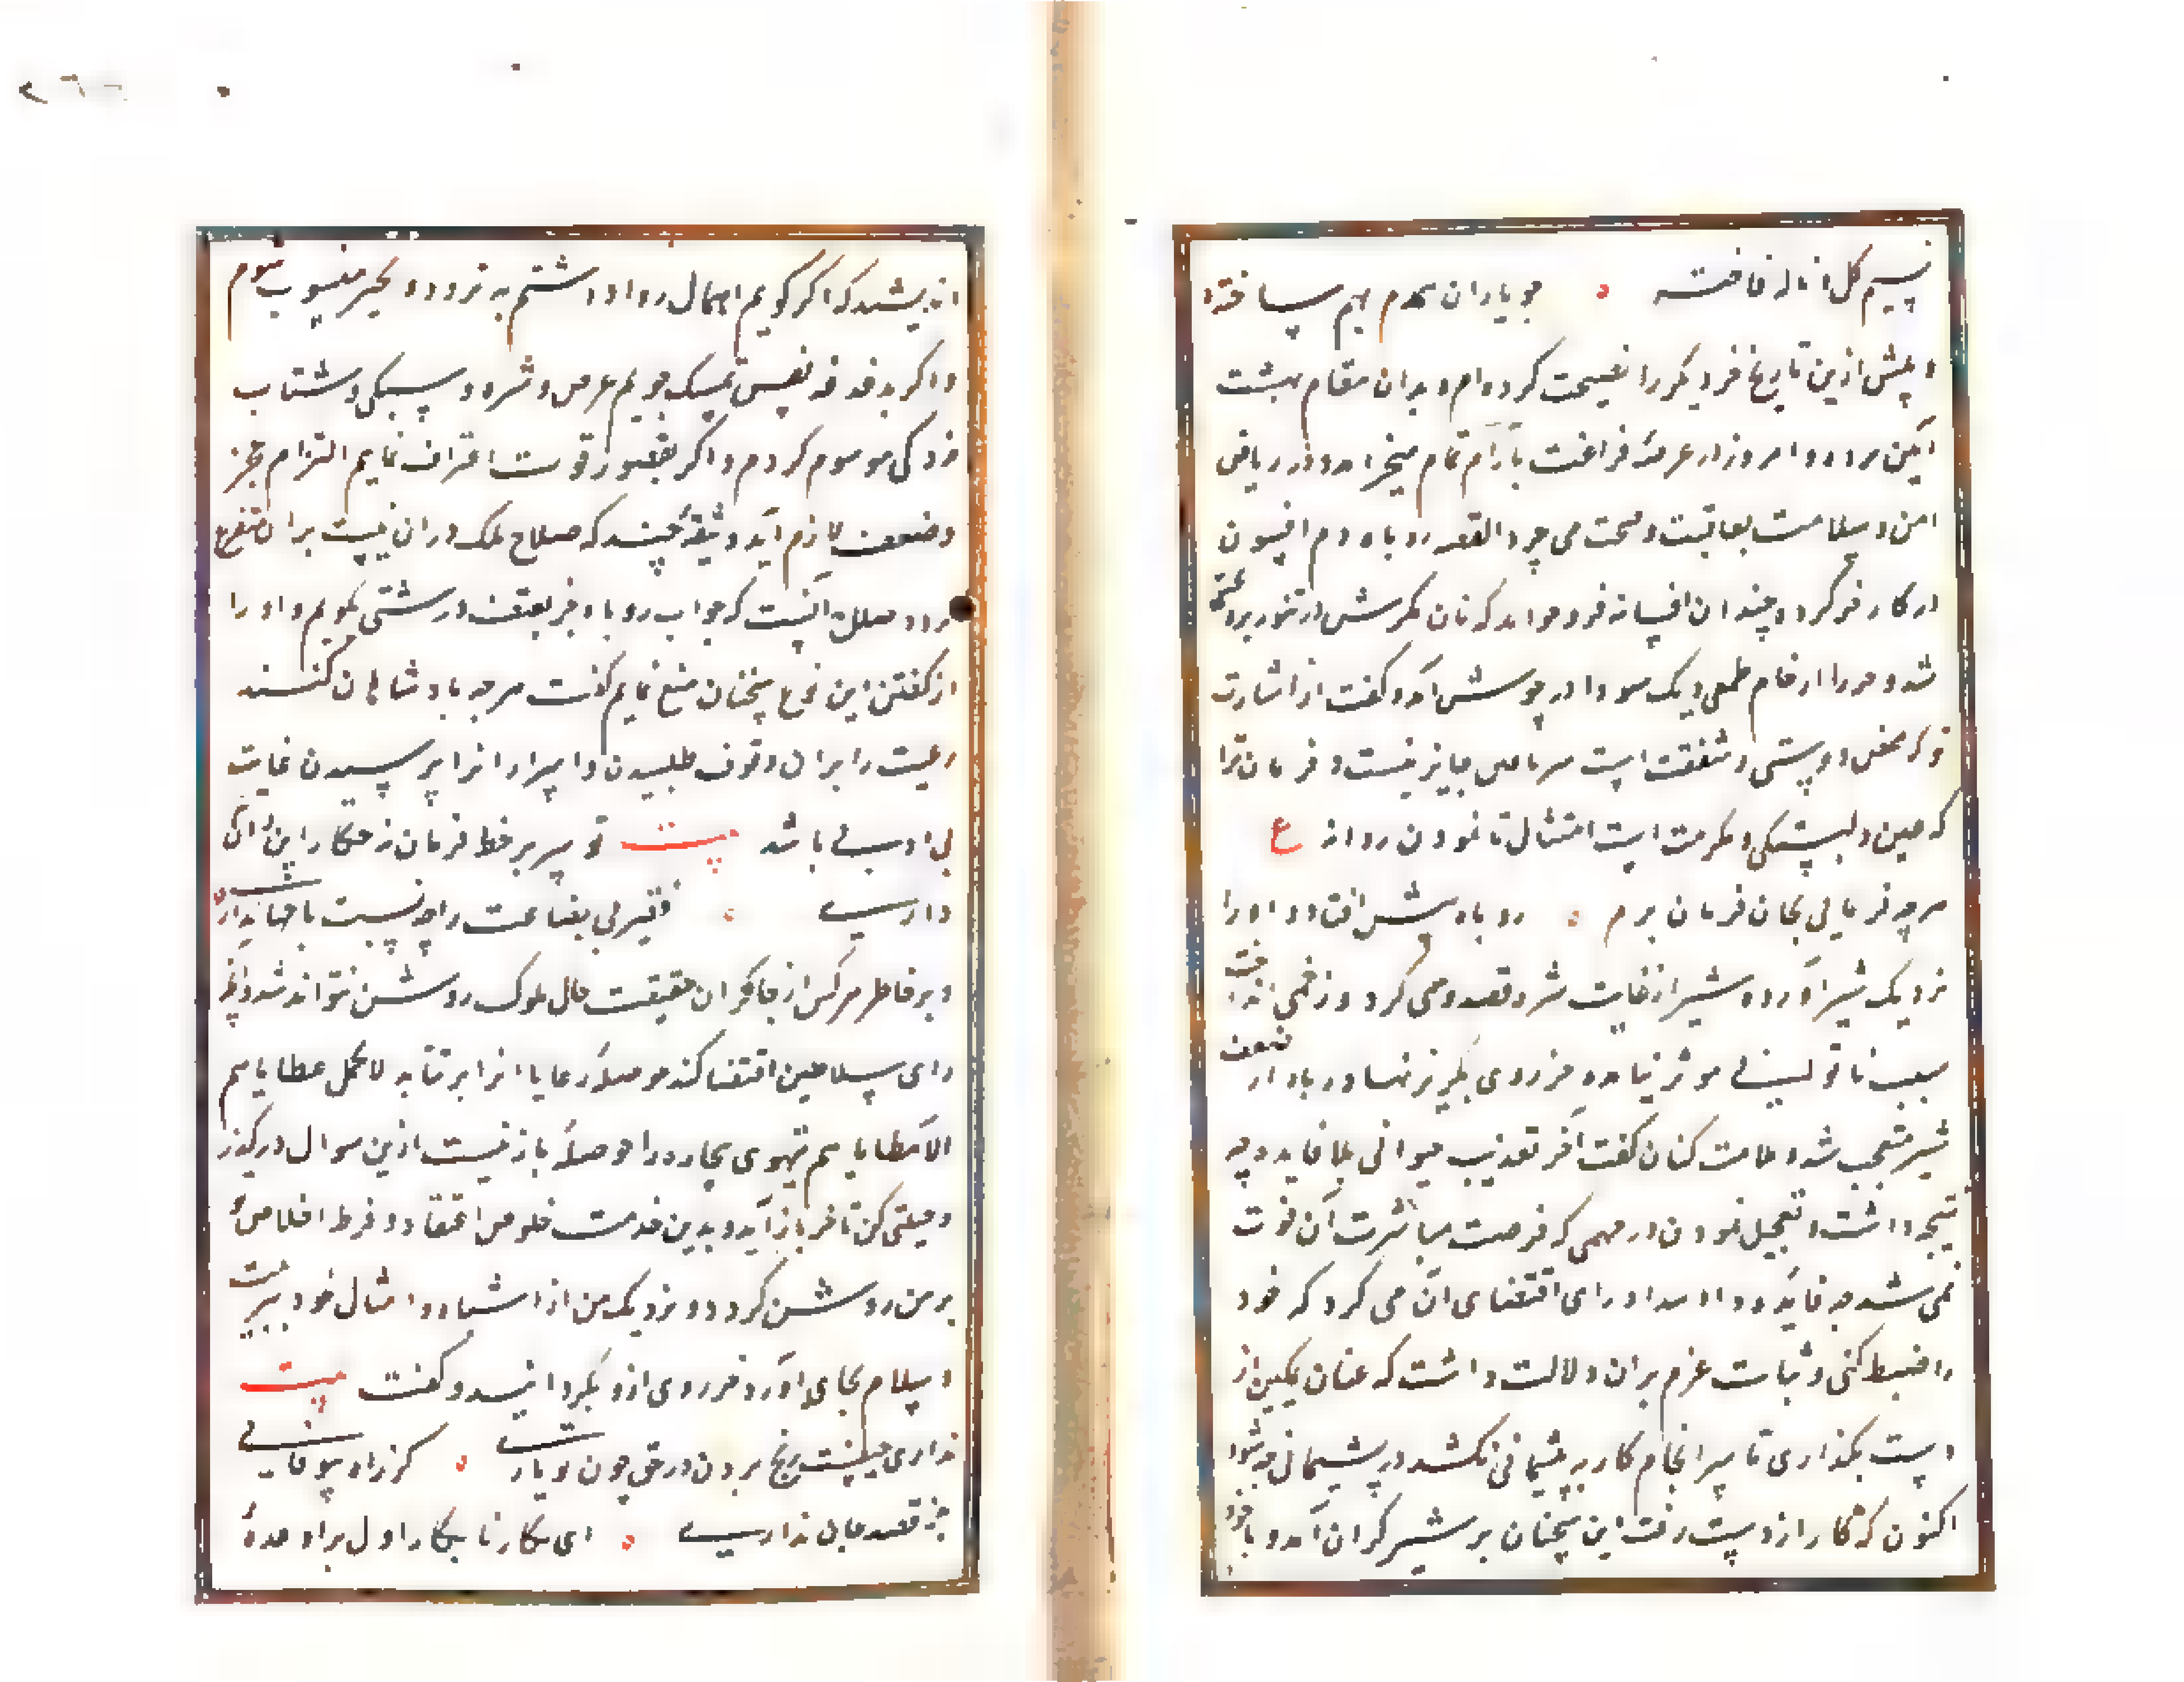 نسیم گل با ناله فاخته ه چو یاران محرم بهم ساخته
و پیش ازین تاریخ خر دیگر را نصیحت کرده‌ام و بدان مقام بهشت
آیین برده و امروز در عرصهٔ فراغت بآرام تمام میخرامد و در ریاض
امن و سلامت بعافیت و صحت می چرد القصه روباه دم افسون
در کار خر کرد و چندان افسانه فرو خواند که نان مکرش در تنور پخته
شد و خر را از خام طمعی دیک سودا در جوش آمد و گفت از اشارت
تو که محض دوستی و شفقت است سر تافتن جایز نیست و فرمان ترا
که عین دلبستکی و مکرمت است امتثال نا نمودن روا نه ع
هرچه فرمایی بجان فرمان برم ه روباه پیش افتاد و او را
نزدیک شیر آورد و شیر از غایت شره قصد وی کرد و زخمی انداخت
سبب ناتوانی مؤثر نیامد و خر روی بگریز نهاد و روباه از ضعف
شیر متعجب شد و ملامت کنان گفت آخر تعذیب حیوانی بلا فایده چه
نتیجه داشت و تعجیل نمودن در مهمی که فرصت مباشرت آن فوت
نمی شد چه فایده داد سداد رای اقتضای آن می کرد که خود
را ضبط کنی و ثبات عزم بران دلالت داشت که عنان تمکین از
دست بگذاری تا سرانجام کار به پشیمانی نکشد و پشیمانی چه سود
اکنون که کار از دست رفت این سخنان بر شیر گران آمد و با خود
اندیشید که اگر گویم اهمال روا داشتم به تردد و تحیر منسوب شوم
و اگر بدغدغه نفس تمسک جویم بحرص و شره و سبکی و شتاب
زدگی موسوم کردم و اگر بقصور قوت اعتراف نمایم التزام عجز
و ضعف لازم آید و نتیجهٔ چند که صلاح ملک دران نیست بران متفرع
کردد صلاح آنست که جواب روباه جز بعنف و درشتی نگویم و او را
از گفتن این نوع سخنان منع نمایم گفت هرچه پادشاهان کنند
رعیت را بران وقوف طلبیدن و اسرار آنرا پرسیدن غایت
بی ادبی باشد بیت تو سر بر خط فرمان نه چکار این و آن
داری ه فقیر بی بضاعت را چه نسبت با جهانداری
و بر خاطر هر کس از چاکران حقیقت حال ملوک روشن نتواند شد و آنچه
رای سلاطین اقتضا کند حوصلهٔ رعایا آنرا بر نتابد لا تحمل عطایاهم
الا مطایاهم تیهوی بیچاره را حوصلهٔ باز نیست ازین سوال درگذر
و حیلتی کن تا خر باز آید و بدین خدمت خلوص اعتقاد و فرط اخلاص تو
بر من روشن کردد و نزدیک من از اشباه و امثال خود بمزیت
و سلام بجای آورد خر روی ازو بگردانید و گفت بیت
نداری جنبش رنج بردن در حق چون و یاری ه کزا دو فایی
بجز قصد جان نداری ه ای بکار نا بکار اول مرا وعدهٔ